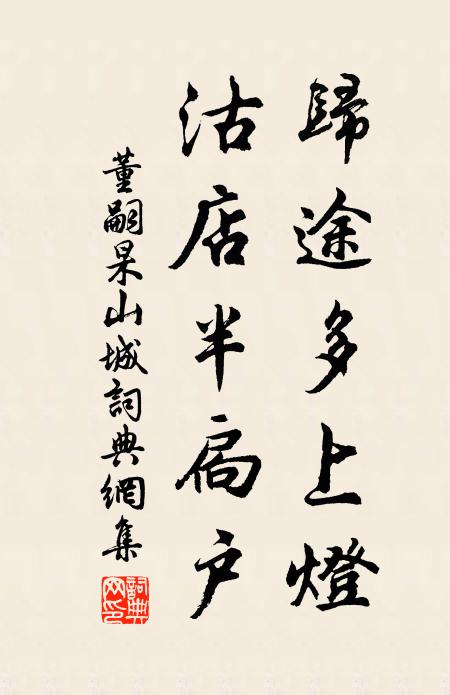 歸途多上燈
沽店半扃户
董嗣杲山城詞典網集
詞典網印